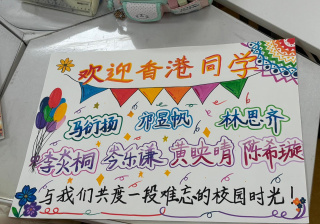 欢迎香港同学
马们扬 邓昱帆 林思齐
李炎桐 岑乐谦 黄映晴 陈希璇
与我们共度一段难忘的校园时光！